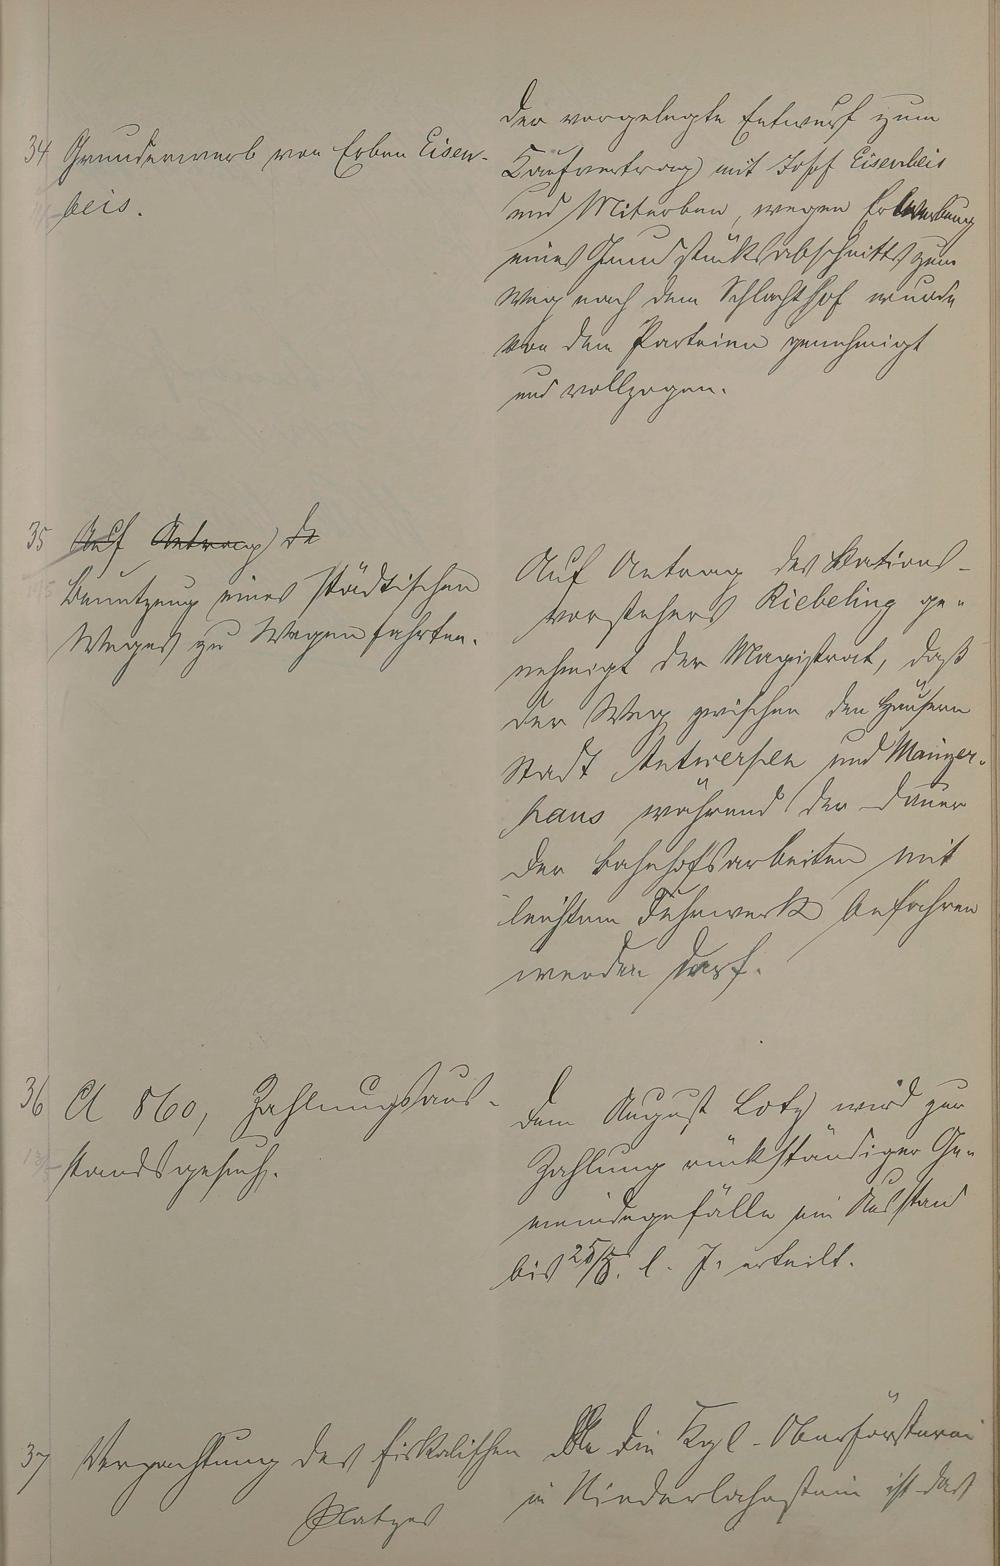 34 Grunderwerb von Erben Eisen-
beis.
Der vorgelegte Entwurf zum
Kaufvertrag mit Josef Eisenbeis
und Miterben, wegen Erwerbung
eines Grundstücksabschnitts zum
Weg nach dem Schlachthof wurde
von den Parteien genehmigt
und vollzogen.
35 Auf Antrag de
Benutzung eines städtischen
Weges zu Wagenfahrten.
Auf Antrag des Stations-
vorstehers Riebeling ge-
nehmigt der Magistrat, daß
der Weg zwischen den Häusern
Stadt Antwerpen und Mainzer-
haus während der Dauer
der Bahnhofsarbeiten mit
leichtem Fuhrwerk befahren
werden darf.
36 A 860, Zahlungsaus-
standsgesuch.
Dem August Lotz wird zur
Zahlung rückständiger Ge-
meindegefälle ein Ausstand
bis l. J. erteilt.
37 Verpachtung des fiskalischen
Platzes
die Kgl. Oberförsterei
in Niederlahnstein ist das